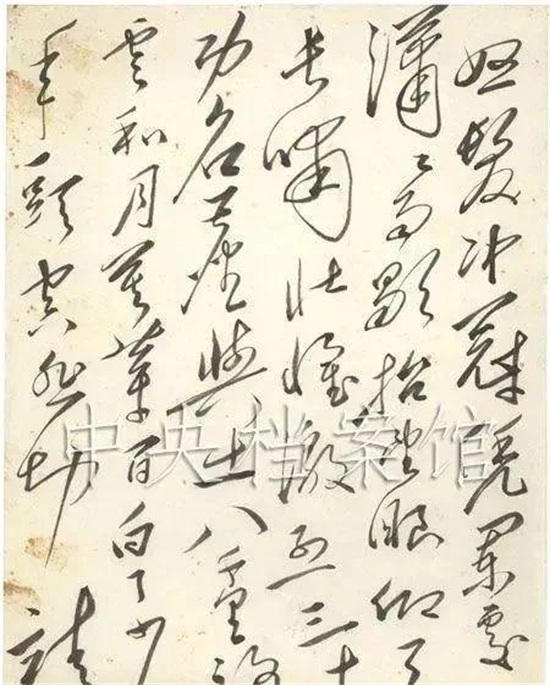 怒髮冲冠凭阑處
潇潇雨歇抬望眼仰天
長嘯壮懷激烈三十
功名塵與土八千里路
云和月莫等闲白了少
年頭空悲切 靖
中央档案馆